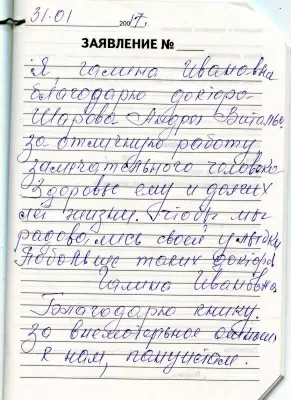 31.01 2007 г.
ЗАЯВЛЕНИЕ №
Я, Галина Ивановна
благодарю доктора
Шарова Андрея Виталье
за отличную работу
замечательного человека
Здоровье ему и долгих
лет жизни. Чтобы мы
радовались своей улыбки
Побольше таких докторов
Галина Ивановна
Благодарю книку.
за
к нам, пациентам.